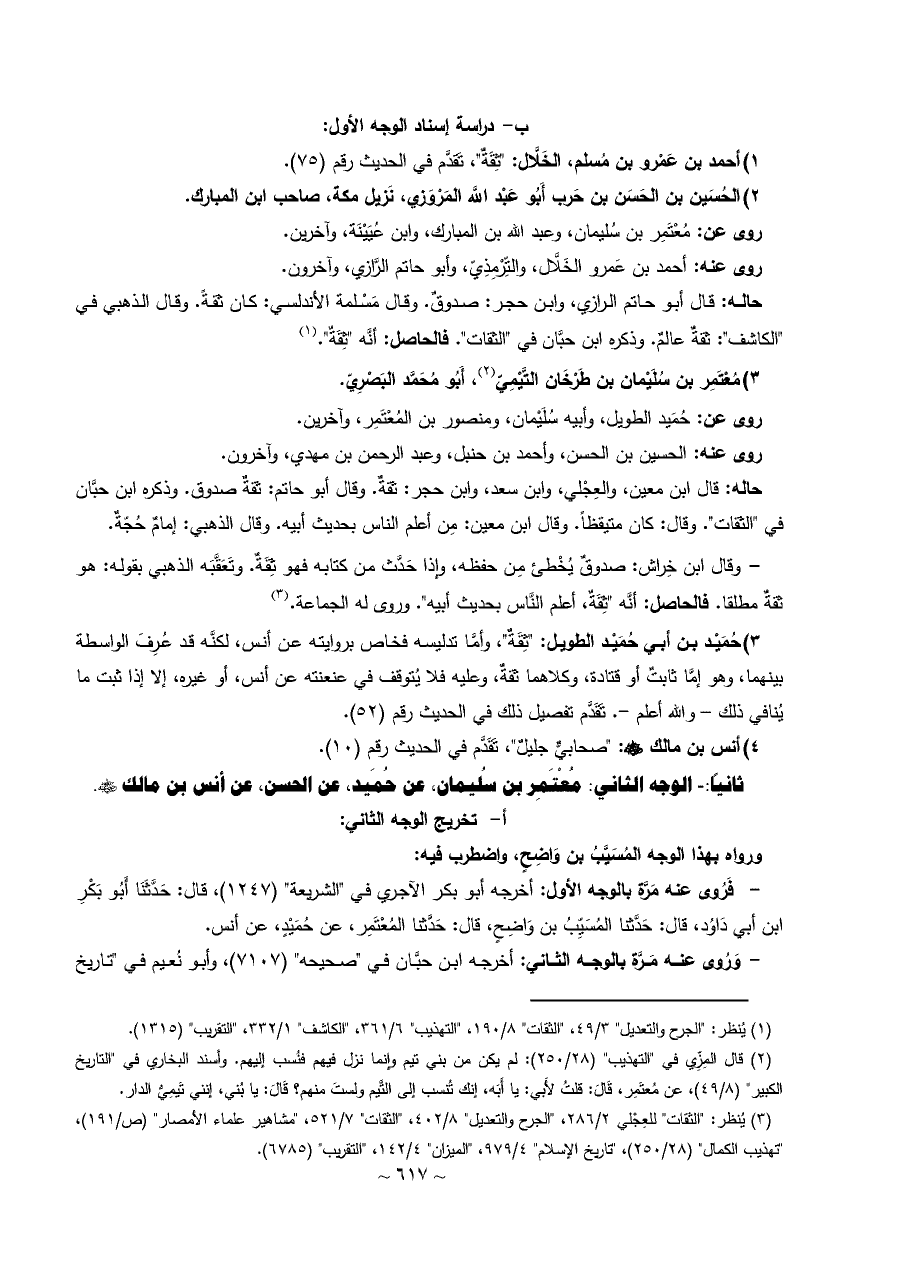 ب- دراسة إسناد الوجه الأول:
١) أحمد بن عَمْرو بن مُسلم، الخَلَّال: "ثِقَةٌ"، تَقدَّم في الحديث رقم (٧٥).
٢) الحُسَين بن الحَسَن بن حَرب أَبُو عَبْد الله المَرْوَزي، نَزيل مكة، صاحب ابن المبارك.
روى عن: مُعْتَمِر بن سُليمان، وعبد الله بن المبارك، وابن عُيَيْنَة، وآخرين.
روى عنه: أحمد بن عَمرو الخَلَّال، والتِّرْمِذِيّ، وأبو حاتم الرَّازي، وآخرون.
حاله: قال أبو حاتم الرازي، وابن حجر: صدوقٌ. وقال مَسْلمة الأندلسي: كان ثقةً. وقال الذهبي في
"الكاشف": ثقةٌ عالمٌ. وذكره ابن حبَّان في "الثقات". فالحاصل: أنَّه "ثِقَةٌ".(١)
٣) مُعْتَمِر بن سُلَيْمان بن طَرْخَان التَّيْمِيّ(٢)، أَبُو مُحَمَّد البَصْرِيّ.
روى عن: حُمَيد الطويل، وأبيه سُلَيْمان، ومنصور بن المُعْتَمِر، وآخرين.
روى عنه: الحسين بن الحسن، وأحمد بن حنبل، وعبد الرحمن بن مهدي، وآخرون.
حاله: قال ابن معين، والعِجْلي، وابن سعد، وابن حجر: ثقةٌ. وقال أبو حاتم: ثقةٌ صدوق. وذكره ابن حبَّان
في "الثقات". وقال: كان متيقظاً. وقال ابن معين: مِن أعلم الناس بحديث أبيه. وقال الذهبي: إمامٌ حُجَّةٌ.
- وقال ابن خِراش: صدوقٌ يُخْطئ مِن حفظه، وإذا حَدَّث من كتابه فهو ثِقَةٌ. وتَعَقَّبَه الذهبي بقوله: هو
ثقةٌ مطلقا. فالحاصل: أنَّه "ثِقَةٌ، أعلم النَّاس بحديث أبيه". وروى له الجماعة.(٣)
٣) حُمَيْد بن أبي حُمَيْد الطويل: "ثِقَةٌ"، وأمَّا تدليسه فخاص بروايته عن أنس، لكنَّه قد عُرِفَ الواسطة
بينهما، وهو إمَّا ثابتٌ أو قتادة، وكلاهما ثقةٌ، وعليه فلا يُتوقف في عنعنته عن أنس، أو غيره، إلا إذا ثبت ما
يُنافي ذلك - والله أعلم -. تَقَدَّم تفصيل ذلك في الحديث رقم (٥٢).
٤) أنس بن مالك ﷺ: "صحابيٌّ جليلٌ"، تَقَدَّم في الحديث رقم (١٠).
ثانياً:- الوجه الثاني: مُعْتَمِر بن سُليمان، عن حُمَيد، عن الحسن، عن أنس بن مالك ﷺ.
أ- تخريج الوجه الثاني:
ورواه بهذا الوجه المُسَيَّبُ بن وَاضِحٍ، واضطرب فيه:
- فَرُوى عنه مَرَّة بالوجه الأول: أخرجه أبو بكر الآجري في "الشريعة" (١٢٤٧)، قال: حَدَّثَنَا أَبُو بَكْرِ
ابن أبي دَاوُد، قال: حَدَّثنا المُسَيِّبُ بن وَاضِحٍ، قال: حَدَّثنا المُعْتَمِر، عن حُمَيْدٍ، عن أنس.
- وَرُوى عنه مَرَّة بالوجه الثاني: أخرجه ابن حبَّان في "صحيحه" (٧١٠٧)، وأبو نُعيم في "تاريخ
(١) يُنظر: "الجرح والتعديل" ٤٩/٣، "الثقات" ١٩٠/٨، "التهذيب" ٣٦١/٦، "الكاشف" ٣٣٢/١، "التقريب" (١٣١٥).
(٢) قال المِزِّي في "التهذيب" (٢٥٠/٢٨): لم يكن من بني تيم وإنما نزل فيهم فنُسب إليهم. وأسند البخاري في "التاريخ
الكبير" (٤٩/٨)، عن مُعتَمِر، قَالَ: قلتُ لأَبي: يا أَبَه، إنك تُنسب إلى التَّيم ولستَ منهم؟ قَالَ: يا بُني، إنني تَيمِيُّ الدار.
(٣) يُنظر: "الثقات" للعِجْلي ٢٨٦/٢، "الجرح والتعديل" ٤٠٢/٨، "الثقات" ٥٢١/٧، "مشاهير علماء الأمصار" (ص/١٩١)،
"تهذيب الكمال" (٢٥٠/٢٨)، "تاريخ الإسلام" ٩٧٩/٤، "الميزان" ١٤٢/٤، "التقريب" (٦٧٨٥).
~ ٦١٧ ~